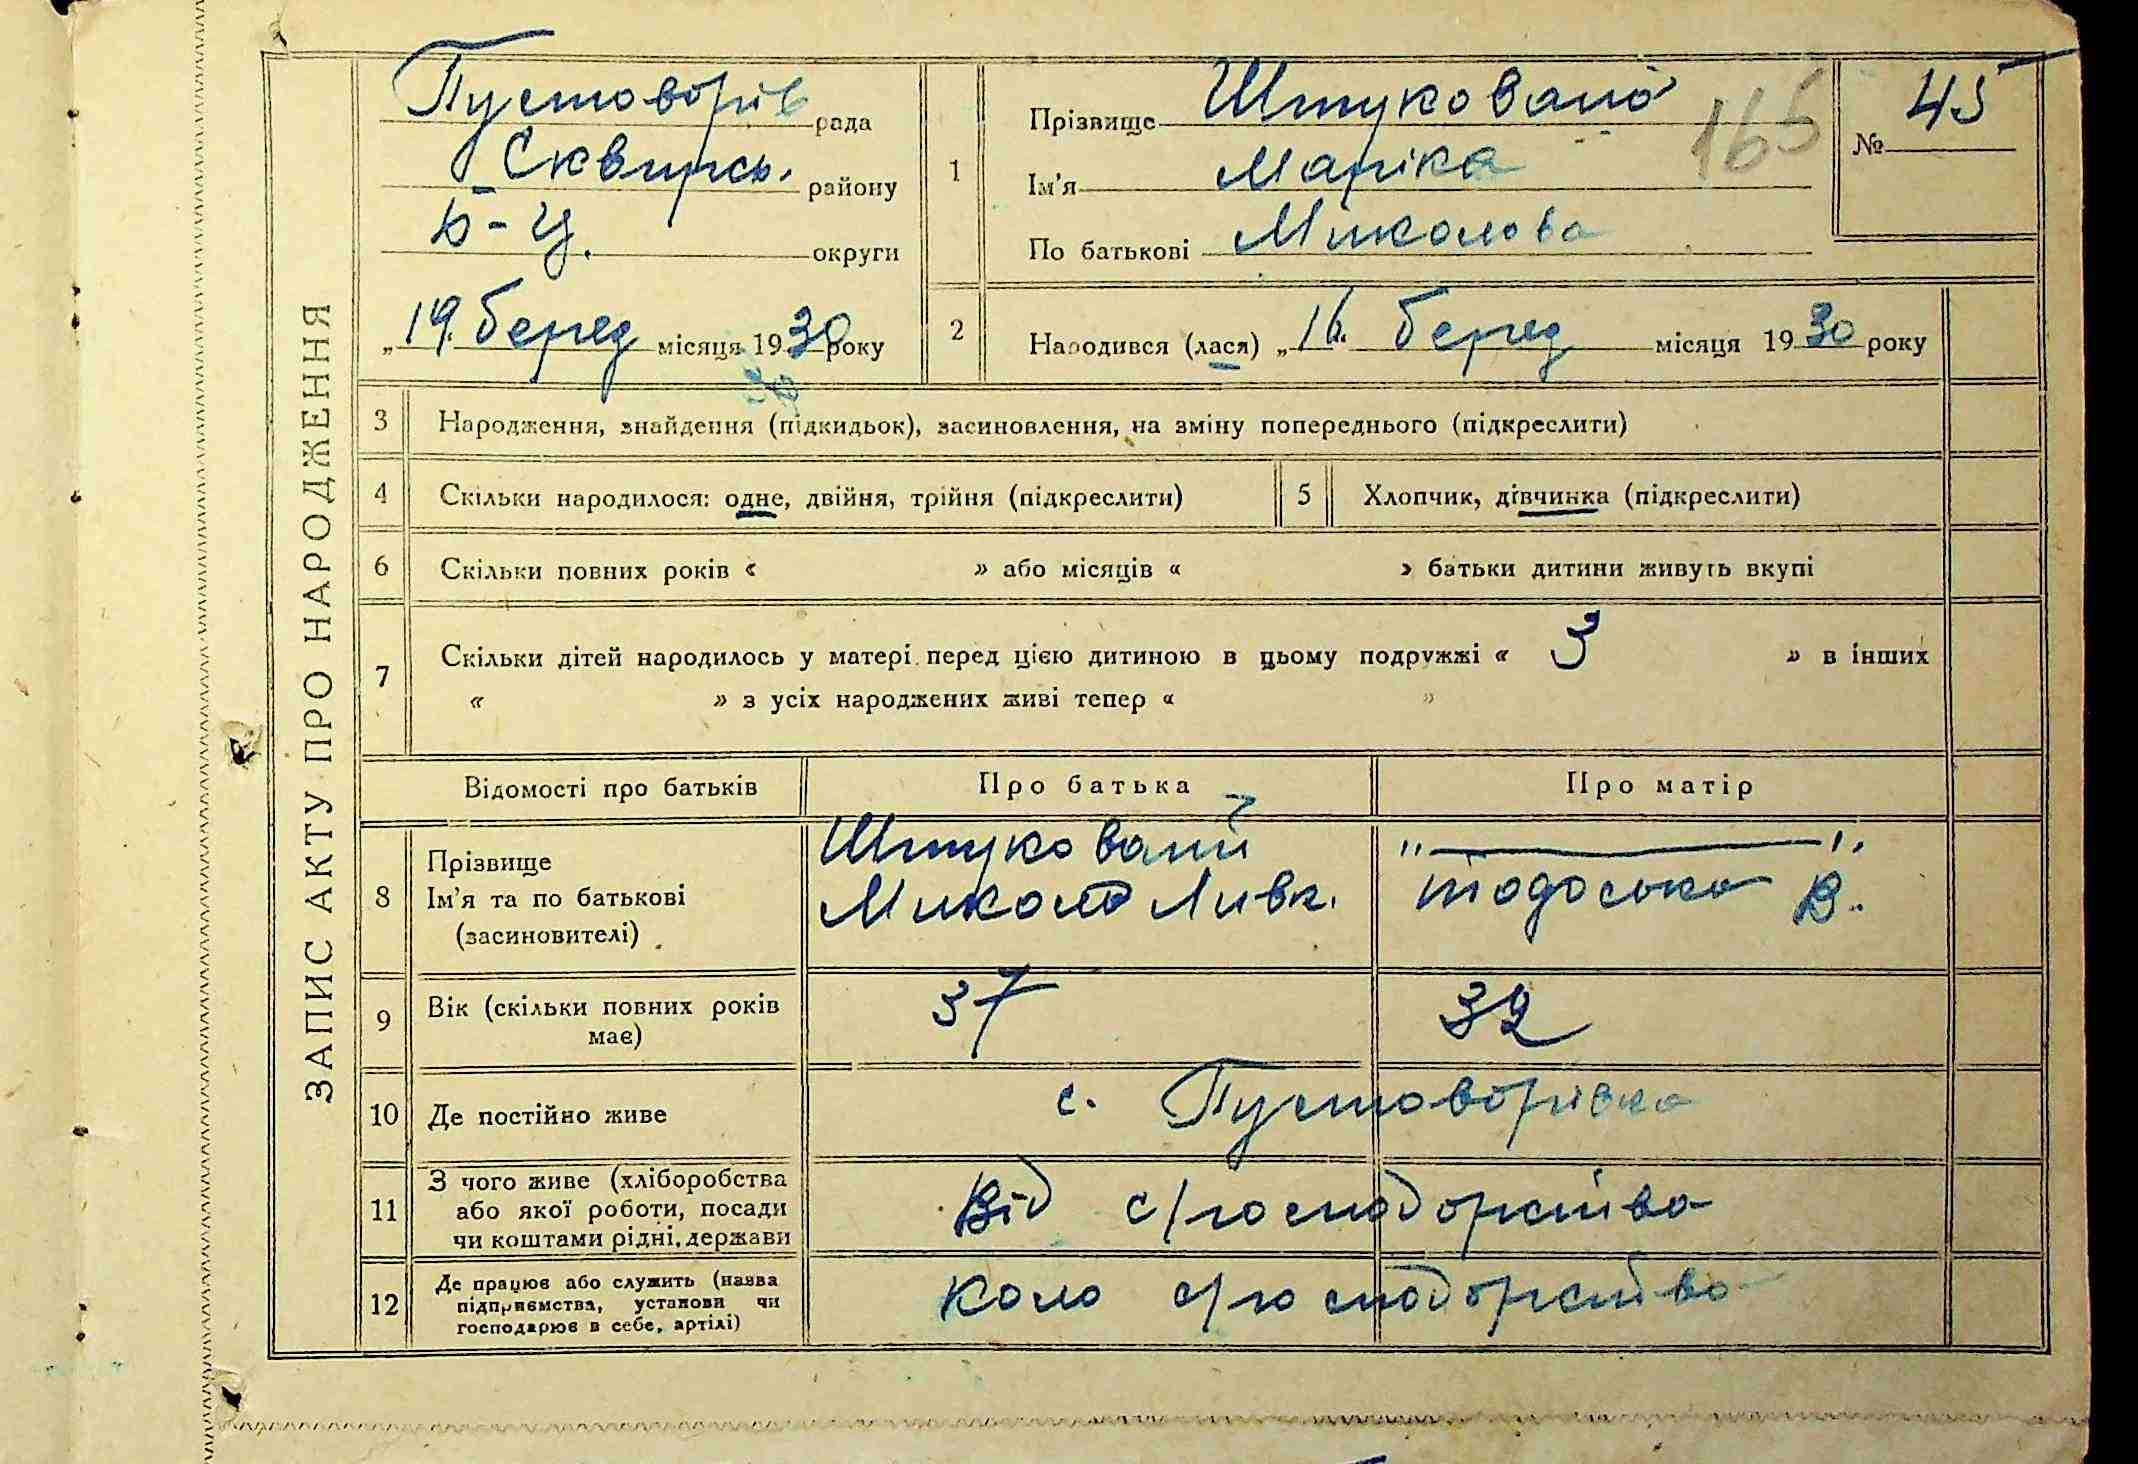 ЗАПИС АКТУ ПРО НАРОДЖЕННЯ
Пустоворів рада
Сквирськ. району
Б-Ц. округи
„19. берез місяця 1930 року
1
Прізвище Штукована
165
№ 45
Ім'я Маріка
По батькові Миколова
2
Народився (лася) „16. берез місяця 1930 року
3 Народження, знайдення (підкидьок), засиновлення, на зміну попереднього (підкреслити)
4 Скільки народилося: одне, двійня, трійня (підкреслити) 5 Хлопчик, дівчинка (підкреслити)
6 Скільки повних років « » або місяців « » батьки дитини живуть вкупі
7 Скільки дітей народилось у матері перед цією дитиною в цьому подружжі « 3 » в інших
« » з усіх народжених живі тепер « »
Відомості про батьків Про батька Про матір
8
Прізвище
Ім'я та по батькові
(засиновителі)
Штукований
Микола
"———".
Тодоська В..
9
Вік (скільки повних років
має)
37 32
10 Де постійно живе с. Пустоворівка
11
З чого живе (хліборобства
або якої роботи, посади
чи коштами рідні, держави
Від с/господорства
12
Де працює або служить (назва
підприємства, установи чи
господарює в себе, артілі)
коло с/господорства